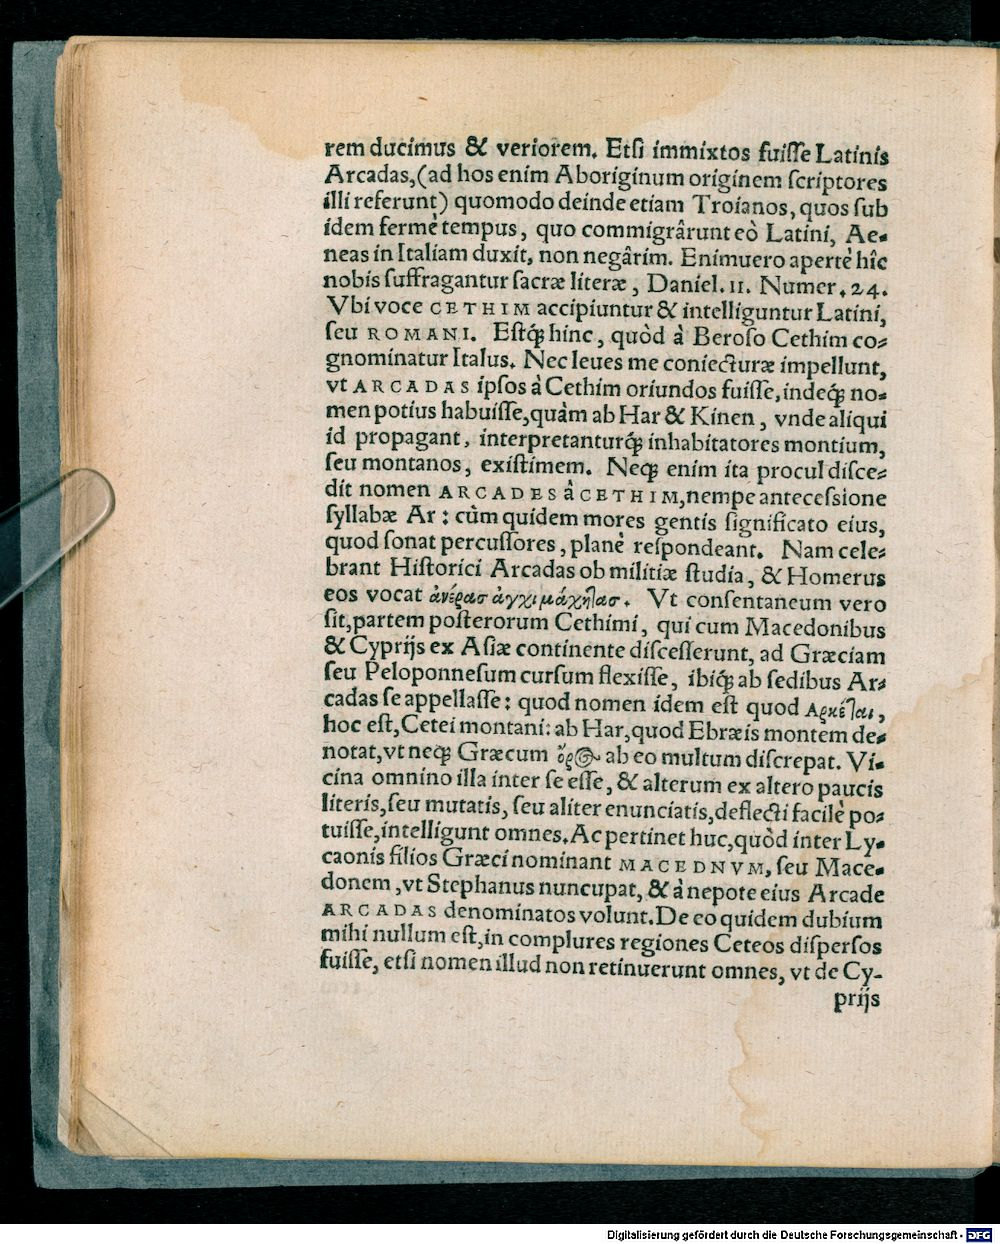 rem ducimus & veriorem. Etſi immixtos fuiſſe Latinis
Arcadas,(ad hos enim Aboriginum originem ſcriptores
illi referunt) quomodo deinde etiam Troianos, quos ſub
idem fermè tempus, quo commigrârunt eò Latini, Ae⸗
neas in Italiam duxit, non negârim. Enimuero apertè hîc
nobis ſuffragantur ſacræ literæ, Daniel. 11. Numer. 24.
Vbi voce CETHIM accipiuntur & intelliguntur Latini,
ſeu ROMANI. Eſtq́; hinc, quòd à Beroſo Cethim co⸗
gnominatur Italus. Nec leues me coniecturæ impellunt,
vt ARCADAS ipſos à Cethim oriundos fuiſſe, indeq́; no⸗
men potius habuiſſe, quàm ab Har & Kinen, vnde aliqui
id propagant, interpretanturq́; inhabitatores montium,
ſeu montanos, exiſtimem. Neq; enim ita procul diſce⸗
dit nomen ARCADES â CETHIM, nempe antecesſione
ſyllabæ Ar: cùm quidem mores gentis ſignificato eius,
quod ſonat percuſſores, planè reſpondeant. Nam cele⸗
brant Hiſtorici Arcadas ob militiæ ſtudia, & Homerus
eos vocat ἀνέρασ ἀγχιμάχητασ. Vt conſentaneum vero
ſit, partem poſterorum Cethimi, qui cum Macedonibus
& Cyprijs ex Aſiæ continente diſceſſerunt, ad Græciam
ſeu Peloponneſum curſum flexiſſe, ibiq́; ab ſedibus Ar⸗
cadas ſe appellaſſe: quod nomen idem eſt quod Αρκέται,
hoc eſt, Cetei montani: ab Har, quod Ebræis montem de⸗
notat, vt neq; Græcum ὄρος ab eo multum diſcrepat. Vi⸗
cina omnino illa inter ſe eſſe, & alterum ex altero paucis
literis, ſeu mutatis, ſeu aliter enunciatis, deflecti facilè po⸗
tuiſſe, intelligunt omnes. Ac pertinet huc, quòd inter Ly⸗
caonis filios Græci nominant MACEDNVM, ſeu Mace⸗
donem, vt Stephanus nuncupat, & à nepote eius Arcade
ARCADAS denominatos volunt. De eo quidem dubium
mihi nullum eſt, in complures regiones Ceteos diſperſos
fuiſſe, etſi nomen illud non retinuerunt omnes, vt de Cy-
prijs
Digitalisierung gefördert durch die Deutsche Forschungsgemeinschaft - DFG